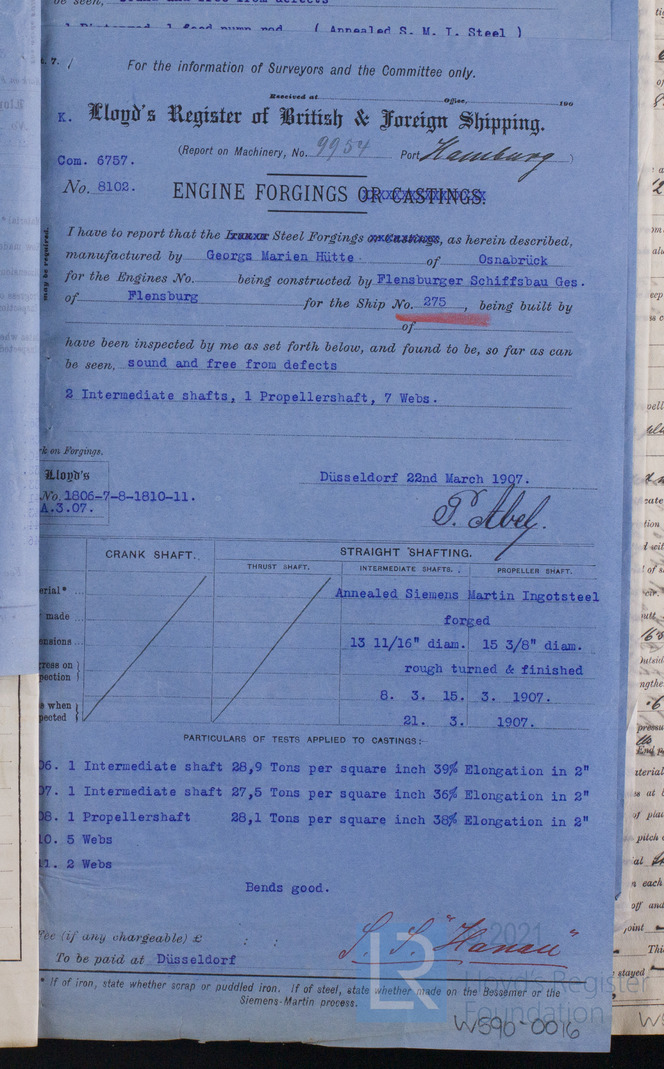 be seen, sound and free from defects
1 feed pump rod ( Annealed S. M. I. Steel )
For the information of Surveyors and the Committee only.
Received at Office, 190
K. Lloyd's Register of British & Foreign Shipping.
(Report on Machinery, No. 9954 Port Hamburg )
Com. 6757.
No. 8102.
ENGINE FORGINGS OR CASTINGS.
may be required.
I have to report that the Steel Forgings or Castings, as herein described,
manufactured by Georgs Marien Hütte of Osnabrück
for the Engines No. being constructed by Flensburger Schiffsbau Ges.
of Flensburg for the Ship No. 275, being built by
of
have been inspected by me as set forth below, and found to be, so far as can
be seen, sound and free from defects
2 Intermediate shafts, 1 Propellershaft, 7 Webs.
k on Forgings.
Lloyd's
No. 1806-7-8-1810-11.
A.3.07.
Düsseldorf 22nd March 1907.
P. Abel.
CRANK SHAFT. STRAIGHT SHAFTING.
THRUST SHAFT. INTERMEDIATE SHAFTS. PROPELLER SHAFT.
erial* Annealed Siemens Martin Ingotsteel
made forged
ensions 13 11/16" diam. 15 3/8" diam.
gress on
pection rough turned & finished
e when 8. 3. 15. 3. 1907.
pected 21. 3. 1907.
PARTICULARS OF TESTS APPLIED TO CASTINGS:—
06. 1 Intermediate shaft 28,9 Tons per square inch 39% Elongation in 2"
07. 1 Intermediate shaft 27,5 Tons per square inch 36% Elongation in 2"
08. 1 Propellershaft 28,1 Tons per square inch 38% Elongation in 2"
10. 5 Webs
11. 2 Webs
Bends good.
Fee (if any chargeable) £ : :
To be paid at Düsseldorf
S. S. "Hanau"
* If of iron, state whether scrap or puddled iron. If of steel, state whether made on the Bessemer or the
Siemens-Martin process.
2021
LR
Lloyd's Register
Foundation
W590-0016